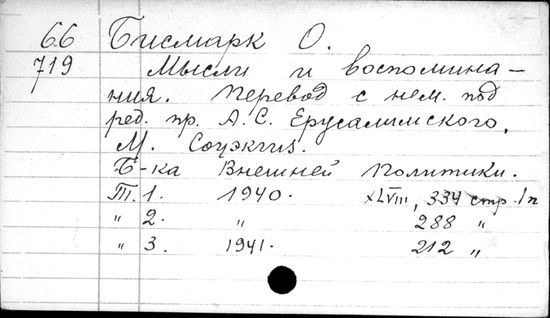 66 Бисмарк О.
719 Мысли и воспомина-
ния. Перевод с нем. под
ред. пр. А.С. Ерусалимского.
М. Соцэкгиз.
Б-ка Внешней Политики.
Т. 1. 1940. XLVIII, 334 стр.
" 2. " 288 "
" 3. 1941. 212 "